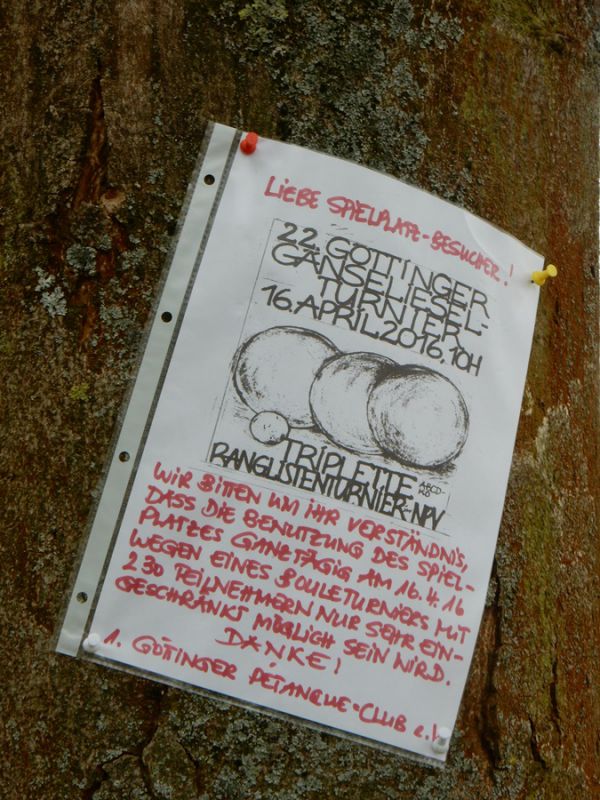 LIEBE SPIELPLATZ-BESUCHER!
22. GÖTTINGER
GÄNSELIESEL-
TURNIER
16. APRIL 2016, 10H
TRIPLETTE ABCD-
KO
RANGLISTENTURNIER-NPV
WIR BITTEN UM IHR VERSTÄNDNIS,
DASS DIE BENUTZUNG DES SPIEL-
PLATZES GANZTÄGIG AM 16.4.16
WEGEN EINES BOULETURNIERS MIT
230 TEILNEHMERN NUR SEHR EIN-
GESCHRÄNKT MÖGLICH SEIN WIRD.
DANKE!
1. GÖTTINGER PÉTANQUE-CLUB e.V.